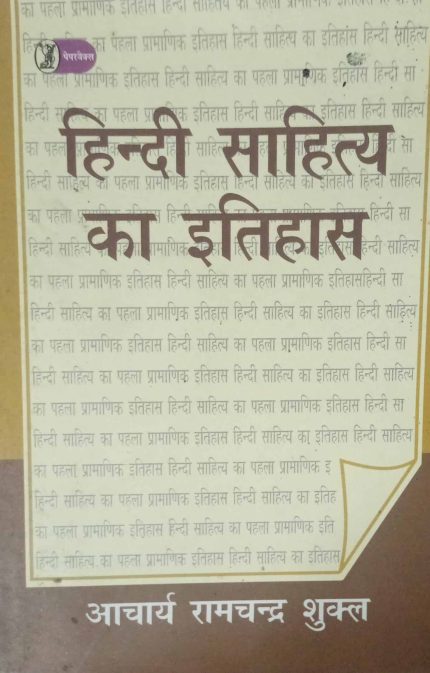 का पहला प्रामाणिक इतिहास हिन्दी साहित्य का पहला प्रामाणिक
का पहला प्रामाणिक इतिहास हिन्दी साहित्य का इतिहास हिन्दी साहित्य
पेपरबैक्स
का पहला प्रामाणिक इतिहास हिन्दी साहित्य का पहला प्रामाणिक इतिहास हिन्दी सा
हिन्दी का पहला इतिहास हिन्दी का इतिहास हिन्दी साहित्य
हिन्दी साहित्य
का इतिहास
का पहला प्रामाणिक इतिहास हिन्दी साहित्य का पहला प्रामाणिक इतिहासहिन्दी सा
हिन्दी साहित्य का पहला प्रामाणिक इतिहास हिन्दी साहित्य का इतिहास हिन्दी साहित्य
का पहला प्रामाणिक इतिहास हिन्दी साहित्य का पहला प्रामाणिक इतिहास हिन्दी सा
हिन्दी साहित्य का पहला प्रामाणिक इतिहास हिन्दी साहित्य का इतिहास हिन्दी साहित्य
का पहला प्रामाणिक इतिहास हिन्दी साहित्य का पहला प्रामाणिक इतिहास हिन्दी सा
हिन्दी साहित्य का पहला प्रामाणिक इतिहास हिन्दी साहित्य का इतिहास हिन्दी साहित्य
का पहला प्रामाणिक इतिहास हिन्दी साहित्य का पहला प्रामाणिक इ
हिन्दी साहित्य का पहला प्रामाणिक इतिहास हिन्दी साहित्य का इतिह
का पहला प्रामाणिक इतिहास हिन्दी साहित्य का पहला प्रामाणिक इति
हिन्दी साहित्य का पहला प्रामाणिक इतिहास हिन्दी साहित्य का इतिहास
आचार्य रामचन्द्र शुक्ल